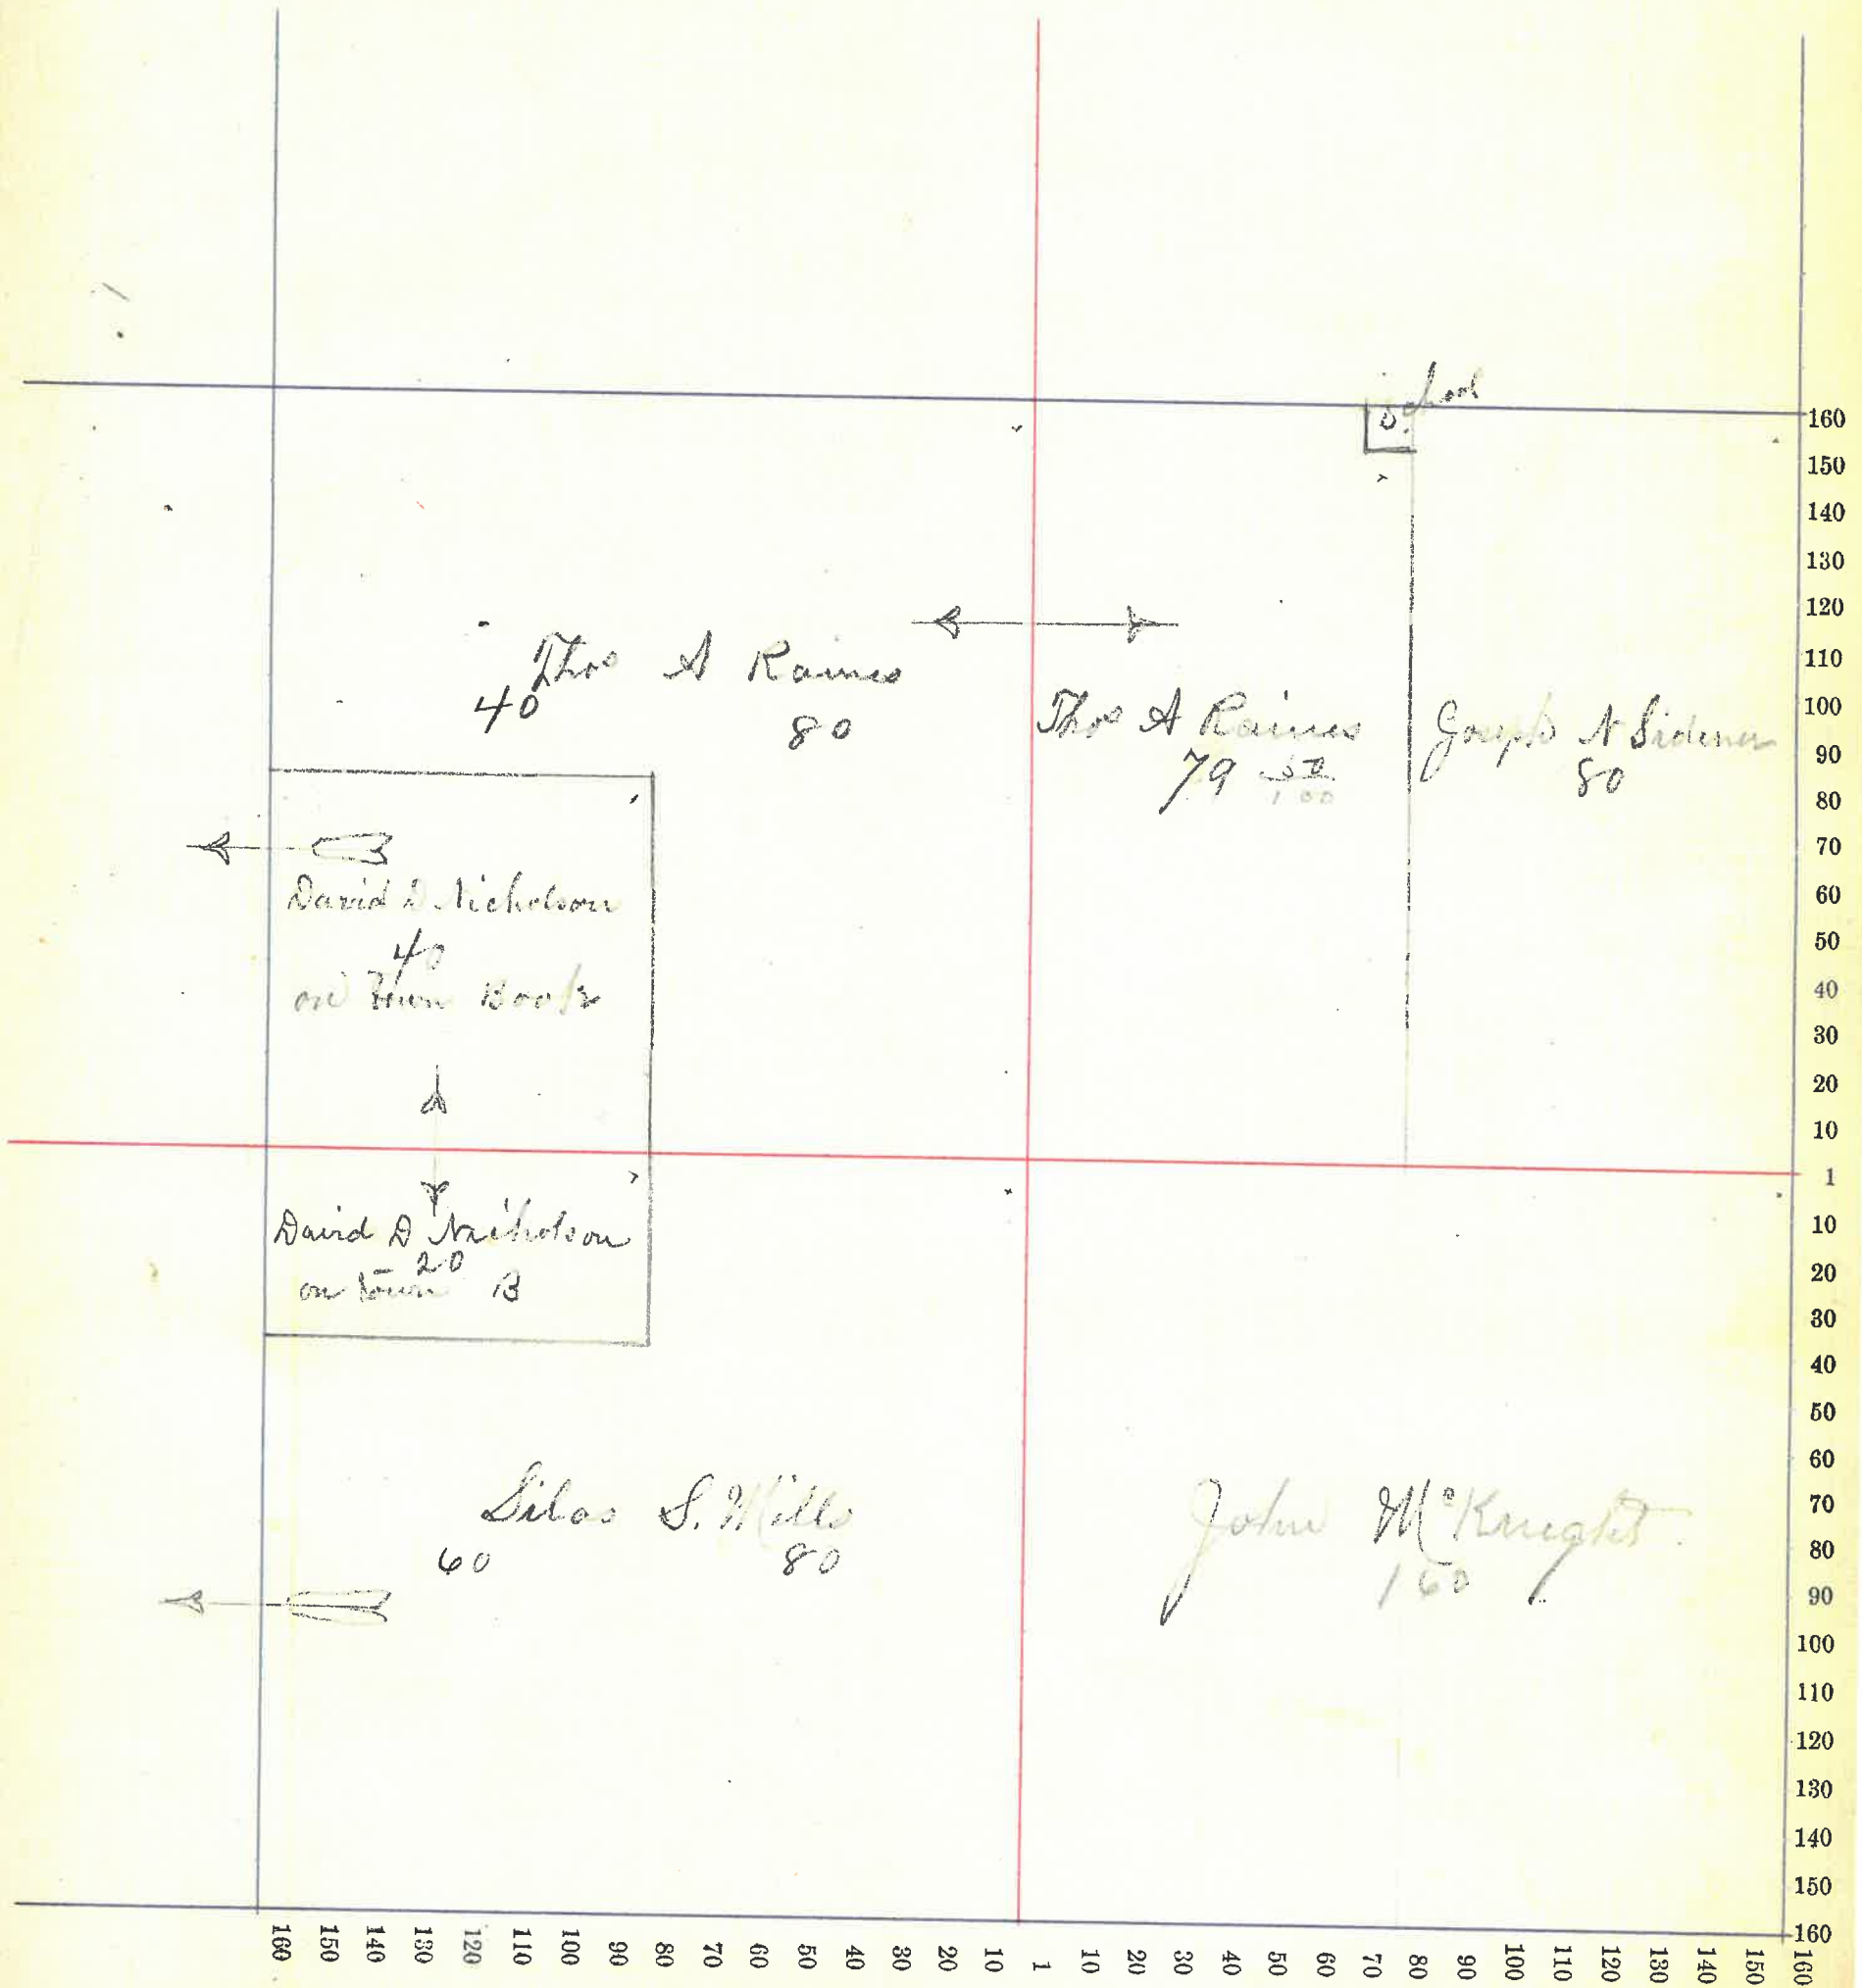 School
160
150
140
130
120
110
100
90
80
70
60
50
40
30
20
10
1
10
20
30
40
50
60
70
80
90
100
110
120
130
140
150
160
Thos A Raines
40 80
Thos A Raines
79 50/100
Joseph N Sidener
80
David D Nicholson
40
on Town Book
David D Nicholson
20
on Town B
Silas S. Mills
60 80
John McKnight
160
160 150 140 130 120 110 100 90 80 70 60 50 40 30 20 10 1 10 20 30 40 50 60 70 80 90 100 110 120 130 140 150 160